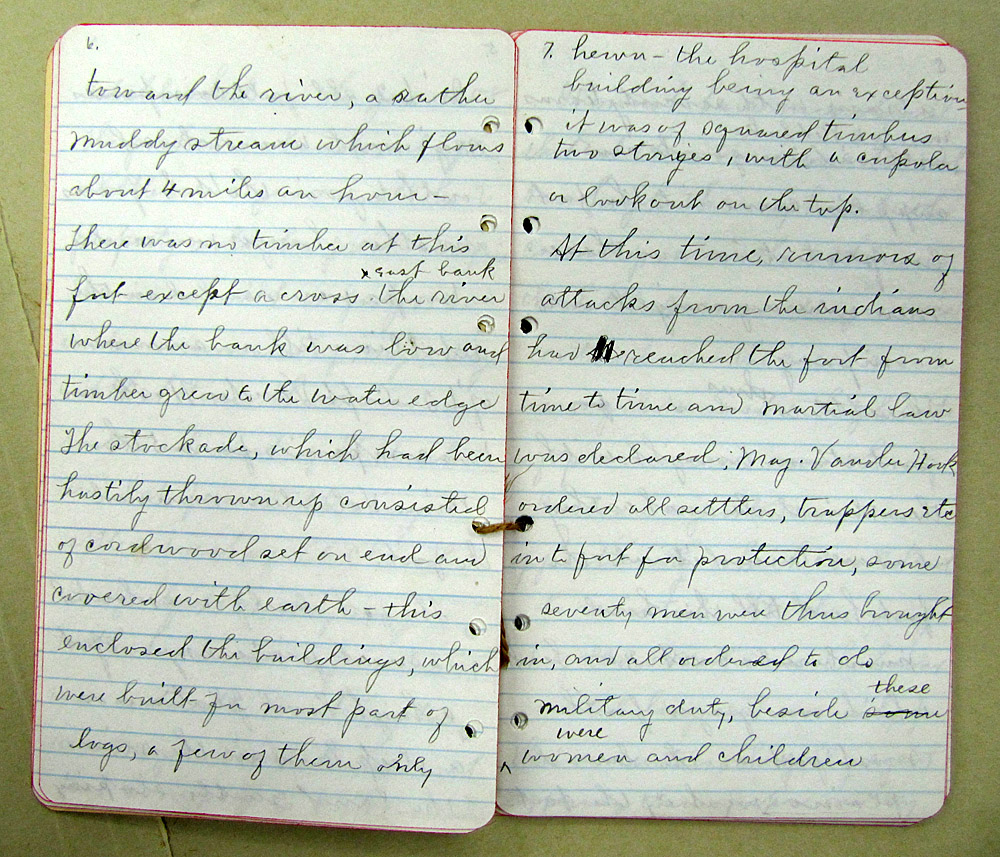 6.
toward the river, a rather
muddy stream which flows
about 4 miles an hour—
There was no timber at this
x east bank
fort except across the river
where the bank was low and
timber grew to the water edge
The stockade, which had been
hastily thrown up consisted
of cordwood set on end and
covered with earth – this
enclosed the buildings, which
were built for most part of
logs, a few of them only
7. hewn – the hospital
building being an exception
it was of squared timbers
two stories, with a cupola
or lookout on the top.
At this time, rumors of
attacks from the indians
had reached the fort from
time to time and martial law
was declared; Maj. Vander Hock
ordered all settlers, trappers etc
into fort for protection, some
seventy men were thus brought
in, and all ordered to do
these
military duty, beside some
were
^ women and children